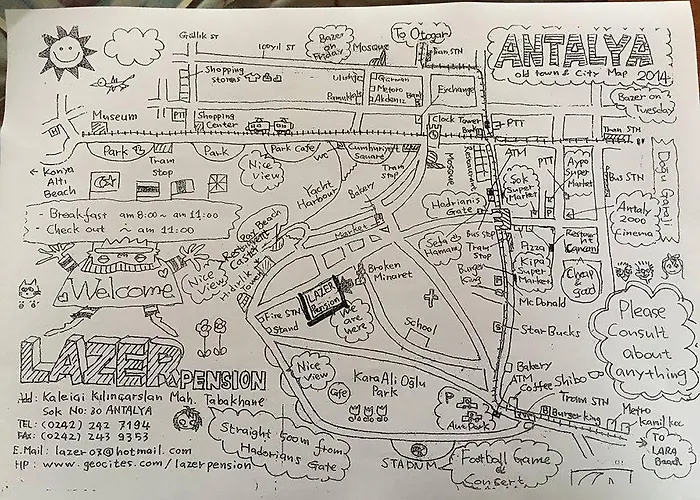 ANTALYA
old town & City Map 2014
Güllük ST
Bazer on Friday
Mosque
To Otogar
Tram STN
Shopping stores
Ulusoy
Pamukkale
German
Metoro
Akdeniz
Bank
Exchange
Bazer on Tuesday
Museum
PTT
Shopping Center
Clock Tower
PTT
Tram STN
Park
Tram Stop
Park
Park Cafe
WC
Cumhuriyet Square
Tram Stop
Mosque
Restaurant
ATM
PTT
Nice View
← Konya Altı Beach
Yacht Harbour
Bakery
Sok Super Market
Aypo Super Market
Bus STN
Hadrianis Gate
Antaly 2000 Cinema
- Breakfast am 8:00 ~ am 11:00
- Check out ~ am 11:00
Market
Sefa Hamamı
Bus Stop
Tram Stop
Pizza
Kipa Super Market
Cheap & Good
Nice View
Hıdırlık Tower
Broken Minaret
Burger King
McDonald
Welcome
LAZER Pension
We are here
Fire STN
Stand
School
StarBucks
Please Consult about anything
Nice View
Cafe
KaraAli Oğlu Park
Bakery
ATM
Coffee Shibo
LAZER PENSION
Add: Kaleiçi Kılınçarslan Mah. Tabakhane
Sok No: 30 ANTALYA
TEL: (0242) 242 7194
FAX: (0242) 243 9353
E.Mail: lazer-03@hotmail.com
HP: www.geocites.com/lazerpension
Straight 500m from Hadorians Gate
P
Tram STN
Burger king
Metro
TO LARA Beach
STADUM
Football Game & Consert